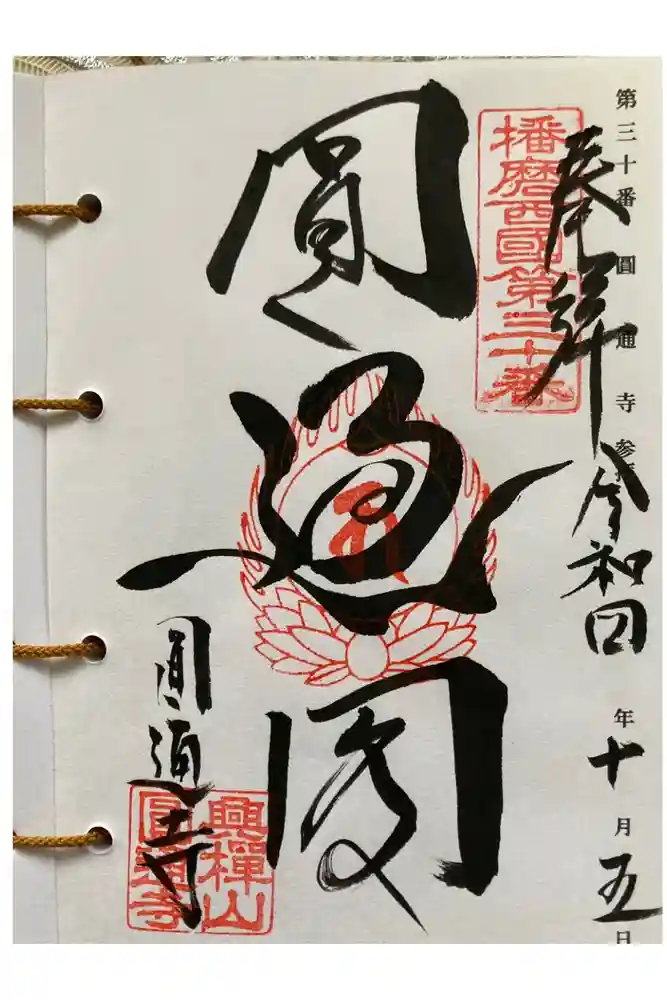 第三十番 圓通寺参
奉拝 令和四年十月五日
播磨西國第三十番
圓通閣
圓通寺
興禪山
圓通寺